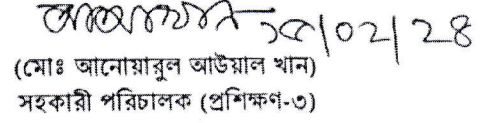 ২৫/০2/28
(মোঃ আনোয়ারুল আউয়াল খান)
সহকারী পরিচালক (প্রশিক্ষণ-৩)